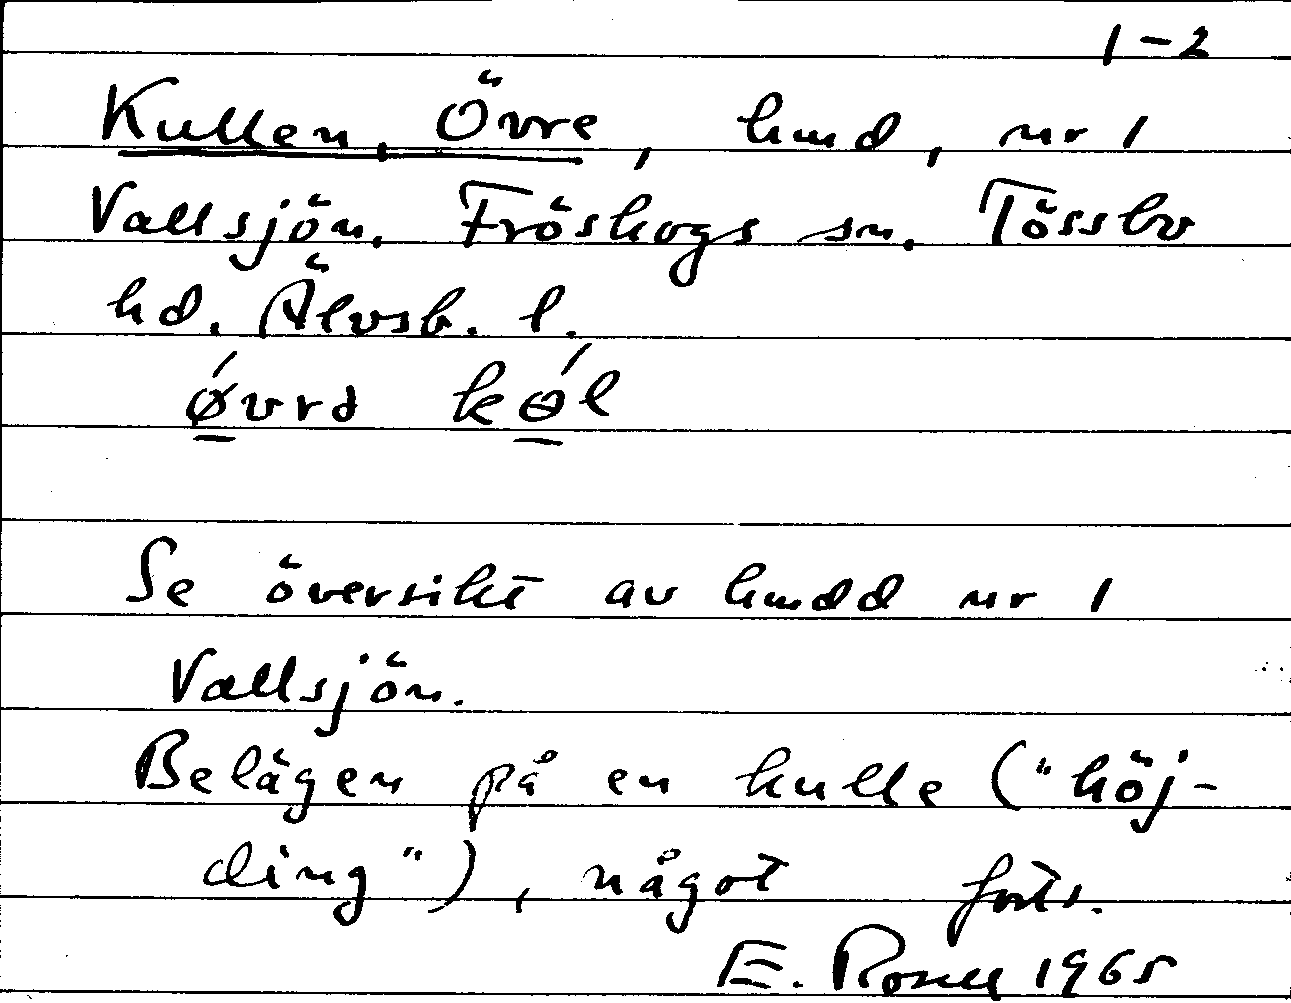 1-2
Kullen, Övre, hmd, nr 1
Vallsjön. Fröskogs sn. Tössbo
hd. Älvsb. l.
Se översikt av hmdd nr 1
Vallsjön.
Belägen på en kulle ("höj-
ding"), något forts.
E. Rosell 1965